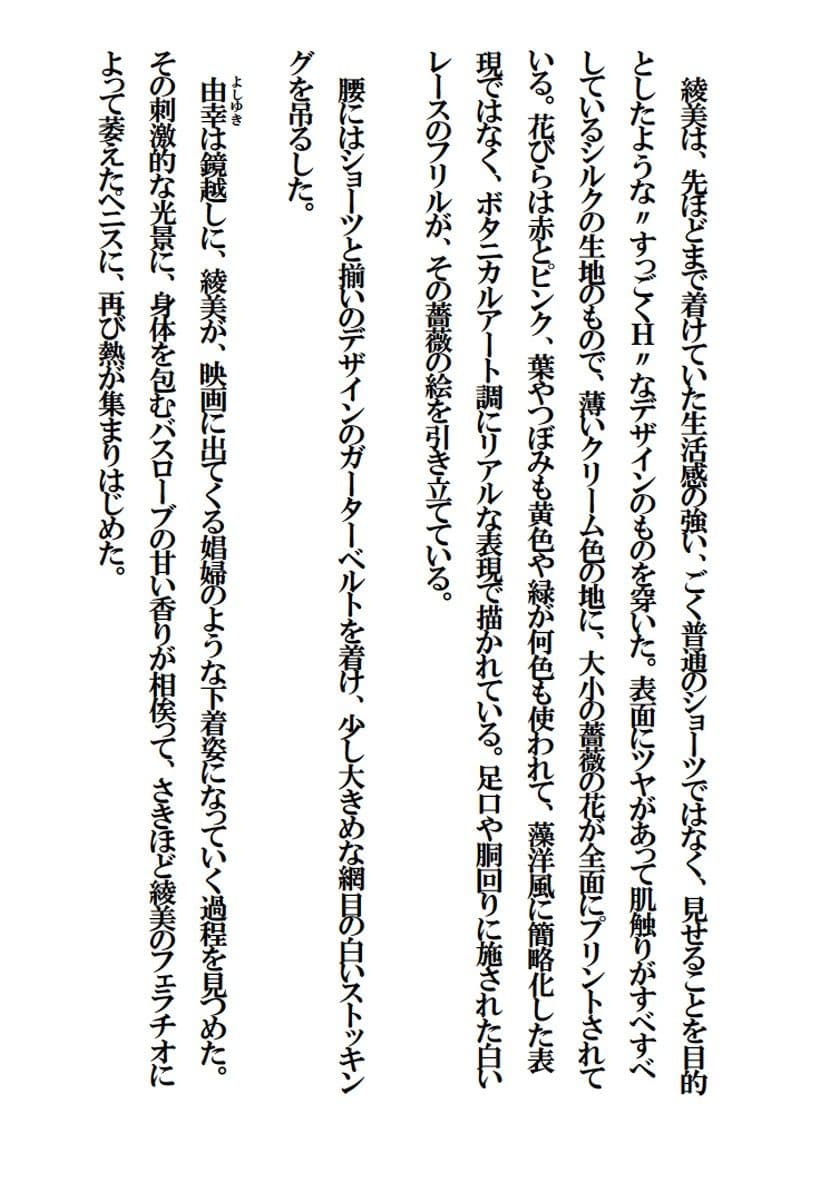 綾美は、先ほどまで着けていた生活感の強い、ごく普通のショーツではなく、見せることを目的
としたような〃すっごくH〃なデザインのものを穿いた。表面にツヤがあって肌触りがすべすべ
しているシルクの生地のもので、薄いクリーム色の地に、大小の薔薇の花が全面にプリントされて
いる。花びらは赤とピンク、葉やつぼみも黄色や緑が何色も使われて、藻洋風に簡略化した表
現ではなく、ボタニカルアート調にリアルな表現で描かれている。足口や胴回りに施された白い
レースのフリルが、その薔薇の絵を引き立てている。
腰にはショーツと揃いのデザインのガーターベルトを着け、少し大きめな網目の白いストッキン
グを吊るした。
由幸は鏡越しに、綾美が、映画に出てくる娼婦のような下着姿になっていく過程を見つめた。
よしゆき
その刺激的な光景に、身体を包むバスローブの甘い香りが相俟って、さきほど綾美のフェラチオに
よって萎えたペニスに、再び熱が集まりはじめた。